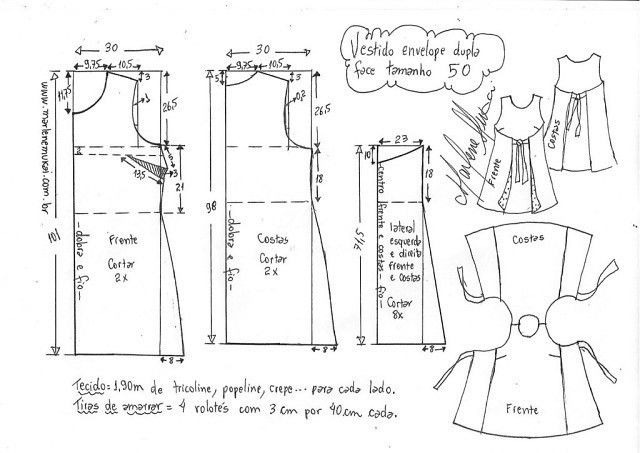 Vestido envelope dupla
face tamanho 50
30
9,75
10,5
3
11,75
26,5
8
5
3
13,5
21
101
Frente
Cortar
2x
-dobra e fio-
8
www.marlenemukai.com.br
30
9,75
10,5
5
3
26,5
18
98
Costas
Cortar
2x
-dobra e fio-
8
23
10
18
centro frente e costas - fio-
lateral
esquerda
e direita
frente
e costas
Cortar
8x
8
Marlene Mukai
Frente
Costas
Costas
Frente
Tecido = 1,90m de tricoline, popeline, crepe... para cada lado.
Tiras de amarrar = 4 rolotês com 3 cm por 40 cm cada.